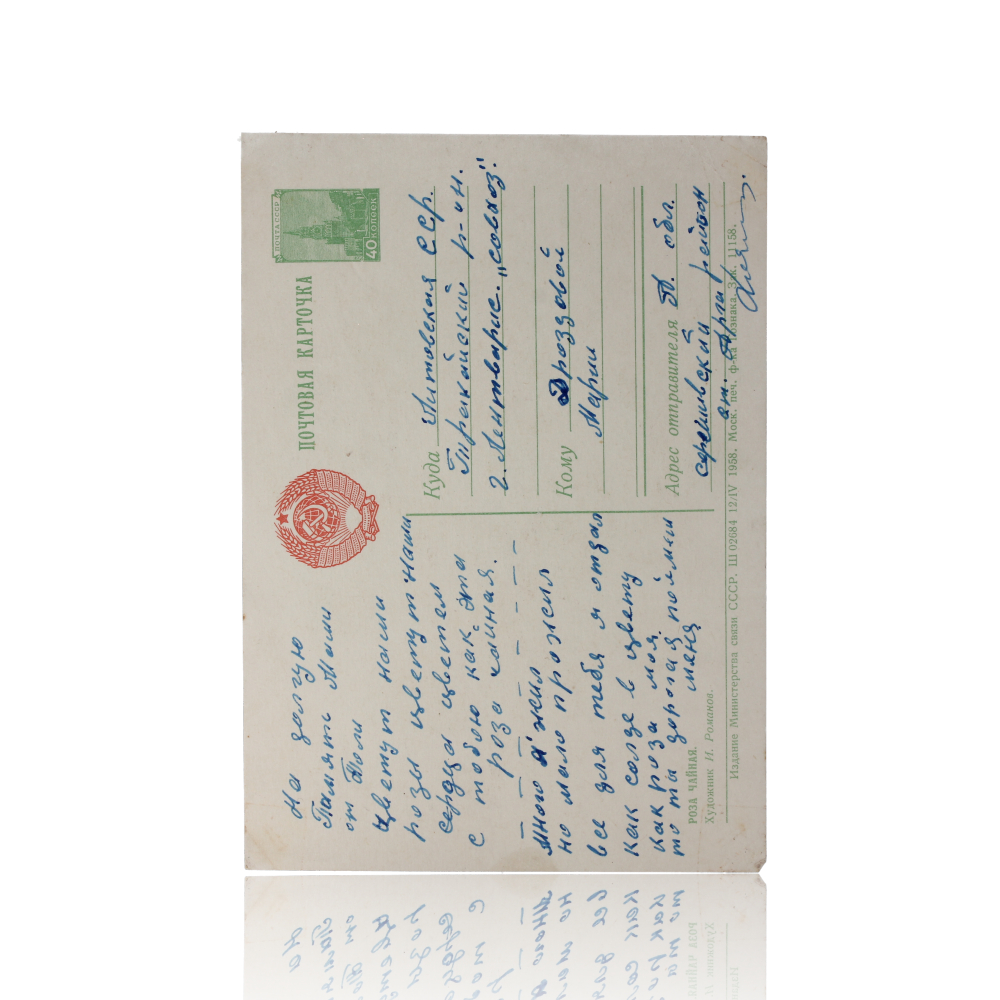 ПОЧТОВАЯ КАРТОЧКА
ПОЧТА СССР
40 КОПЕЕК
На долгую
Память Маши
от Толи
Цветут наши
розы цветут наши
сердца цветем
с тобою как эта
роза чайная.
много я жил
но мало прожил
все для тебя я отдал
как солце в цвету
как роза моя
то ты дорогая пойми
меня
РОЗА ЧАЙНАЯ.
Художник И. Романов.
Куда Литовская ССР.
Тракайский р-он.
г. Лентварис. „совхоз".
Кому Дроздовой
Марии
Адрес отправителя обл.
район
ст.
Издание Министерства связи СССР. Ш 02684 12/IV 1958. Моск. печ. ф-ка Гознака. Зак. 11158.